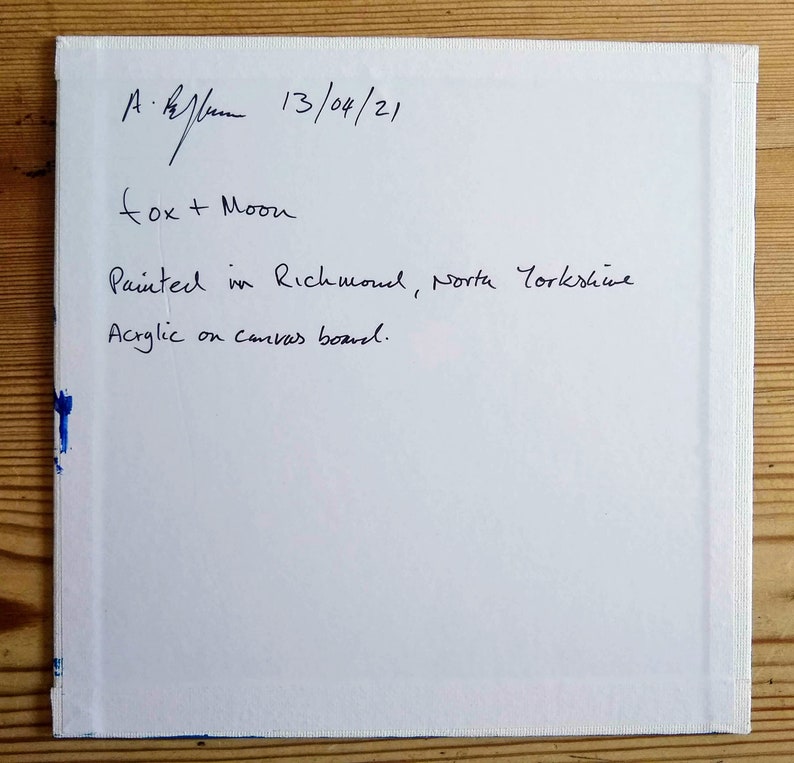 A. 13/04/21
fox + Moon
Painted in Richmond, North Yorkshire
Acrylic on canvas board.